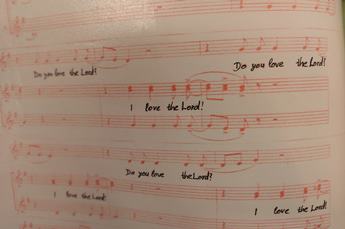 Do you love the Lord! Do you love the Lord!
I love the Lord!
Do you love the Lord?
I love the Lord!
I love the Lord!